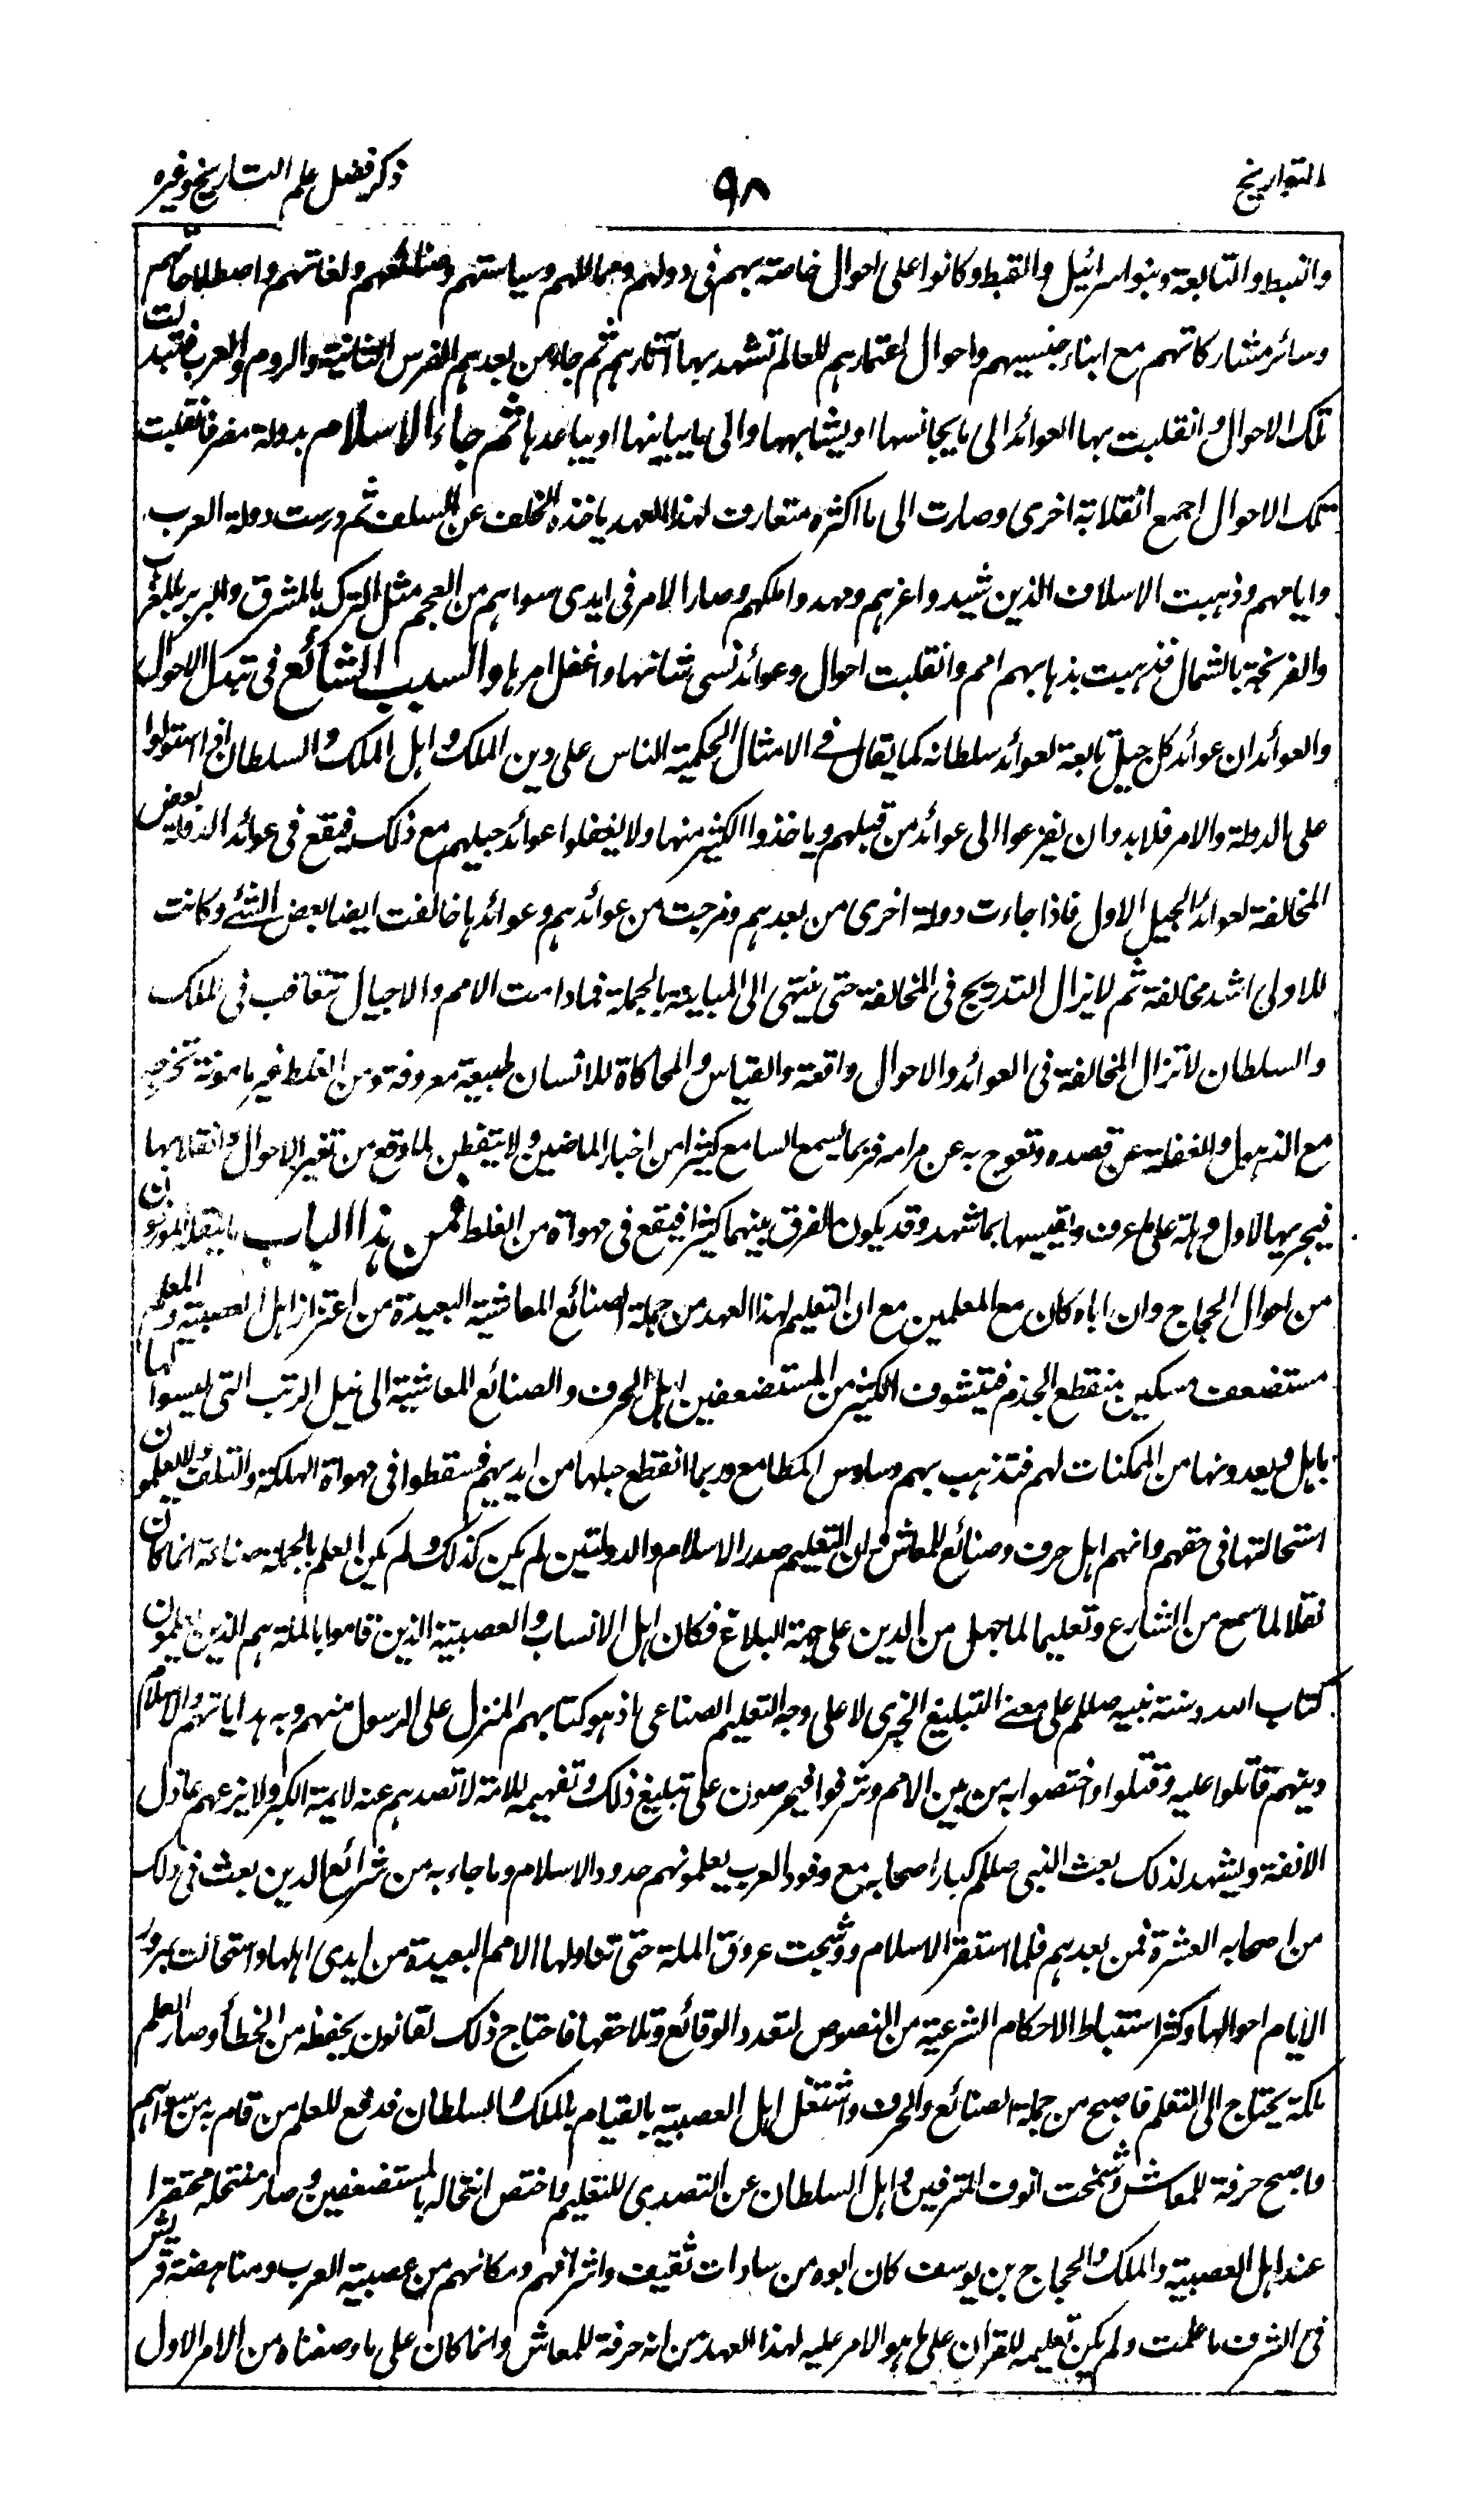 التواريخ
٩٨
ذكر فضل علم التاريخ وغيره
والنبط والتبابعة وبنو اسرائيل والقبط وكانوا على احوال خاصة بهم فى دولهم وممالكهم وسياستهم وصنائعهم ولغاتهم واصطلاحاتهم
وسائر مشاركاتهم مع ابناء جنسيهم واحوال اعتمارهم للعالم تشهد بها آثارهم ثم جاء من بعدهم الفرس الثانية والروم والعرب فتبدلت
تلك الاحوال وانقلبت بها العوائد الى ما يجانسها او يشابهها والى ما يباينها او يباعدها ثم جاء الاسلام بدولة مضر فانقلبت
تلك الاحوال اجمع انقلابة اخرى وصارت الى ما اكثره متعارف لهذا العهد ياخذه الخلف عن السلف ثم درست دولة العرب
وايامهم وذهبت الاسلاف الذين شيدوا عزهم ومهدوا ملكهم وصار الامر فى ايدى سواهم من العجم مثل الترك بالمشرق والبربر بالمغرب
والفرنجة بالشمال فذهبت بذهابهم امم وانقلبت احوال وعوائد نسى شانها واغفل امرها والسبب الشائع فى تبدل الاحوال
والعوائد ان عوائد كل جيل تابعة لعوائد سلطانه كما يقال فى الامثال الحكمية الناس على دين الملك واهل الملك والسلطان اذا استولوا
على الدولة والامر فلا بد وان يفزعوا الى عوائد من قبلهم وياخذوا الكثير منها ولا يغفلوا عوائد جيلهم مع ذلك فيقع فى عوائد الدولة بعض
المخالفة لعوائد الجيل الاول فاذا جاءت دولة اخرى من بعدهم ومزجت من عوائدهم وعوائدها خالفت ايضا بعض الشئ وكانت
للاولى اشد مخالفة ثم لا يزال التدريج فى المخالفة حتى ينتهى الى المباينة بالجملة فمادامت الامم والاجيال تتعاقب فى الملك
والسلطان لا تزال المخالفة فى العوائد والاحوال واقعة والقياس والمحاكاة للانسان طبيعة معروفة ومن الغلط غير مامونة تخرجه
مع الذهول والغفلة عن قصده وتعوج به عن مرامه فربما يسمع السامع كثيرا من اخبار الماضين ولا يتفطن لما وقع من تغير الاحوال وانقلابها
فيجريها لاول وهلة على ما عرف ويقيسها بما شهد وقد يكون الفرق بينهما كثيرا فيقع فى مهواة من الغلط فمن هذا الباب ما ينقله المورخون
من احوال الحجاج وان اباه كان مع المعلمين مع ان التعليم لهذا العهد من جملة الصنائع المعاشية البعيدة من اعتزاز اهل العصبية والمعلم
مستضعف مسكين منقطع الجذم فيتشوف الكثير من المستضعفين اهل الحرف والصنائع المعاشية الى نيل الرتب التى ليسوا لها
باهل ويعدونها من الممكنات لهم فتذهب بهم وساوس المطامع وربما انقطع حبلها من ايديهم فسقطوا فى مهواة الهلكة والتلف ولا يعلمون
استحالتها فى حقهم وانهم اهل حرف وصنائع للمعاش وان التعليم صدر الاسلام والدولتين لم يكن كذلك ولم يكن العلم بالجملة صناعة انما كان
نقلا لما سمع من الشارع وتعليما لما جهل من الدين على جهة البلاغ فكان اهل الانساب والعصبية الذين قاموا بالملة هم الذين يعلمون
كتاب الله وسنة نبيه صللم على معنى التبليغ الخبرى لا على وجه التعليم الصناعى اذ هو كتابهم المنزل على الرسول منهم وبه هداياتهم والاسلام
دينهم قاتلوا عليه وقتلوا واختصوا به من بين الامم وشرفوا فيحرصون على تبليغ ذلك وتفهيمه للامة لا تصدهم عنه لايمة الكبر ولا يزعهم عاذل
الانفة ويشهد لذلك بعث النبى صللم كبار اصحابه مع وفود العرب يعلمونهم حدود الاسلام وما جاء به من شرائع الدين بعث فى ذلك
من اصحابه العشرة فمن بعدهم فلما استقر الاسلام ووشجت عروق الملة حتى تناولها الامم البعيدة من ايدى اهلها واستحالت بمرور
الايام احوالها وكثر استنباط الاحكام الشرعية من النصوص لتعدد الوقائع وتلاحقها فاحتاج ذلك لقانون يحفظه من الخطأ وصار العلم
ملكة يحتاج الى التعلم فاصبح من جملة الصنائع والحرف واشتغل اهل العصبية بالقيام بالملك والسلطان فدفع للعلم من قام به من سواهم
فاصبح حرفة للمعاش وشمخت انوف المترفين واهل السلطان عن التصدى للتعليم واختص انتحاله بالمستضعفين وصار منتحله محتقرا
عند اهل العصبية والملك والحجاج بن يوسف كان ابوه من سادات ثقيف واشرافهم ومكانهم من عصبية العرب ومناهضة قريش
فى الشرف ما علمت ولم يكن تعليمه للقران على ما هو الامر عليه لهذا العهد من انه حرفة للمعاش وانما كان على ما وصفناه من الامر الاول